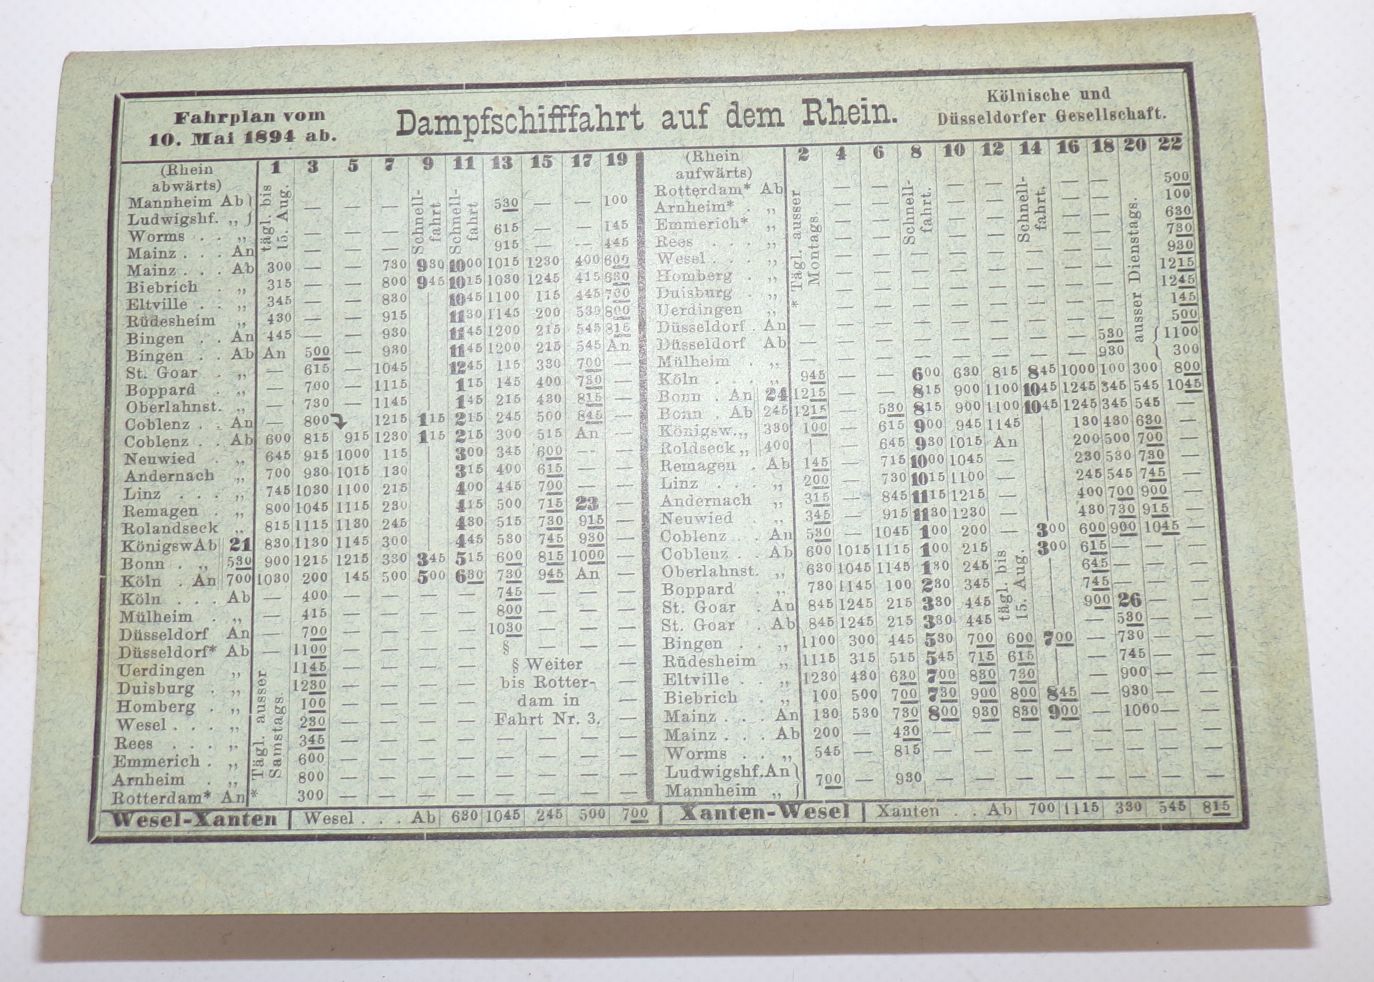 Fahrplan vom
10. Mai 1894 ab.
Dampfschifffahrt auf dem Rhein.
Kölnische und
Düsseldorfer Gesellschaft.
(Rhein abwärts) 1 3 5 7 9 11 13 15 17 19
tägl. bis 15. Aug.
Schnellfahrt
Schnellfahrt
Mannheim Ab — — — 530 — — 100
Ludwigshf. „
Worms . . „ — — — 615 — — 145
Mainz . . . An — — — 915 — — 445
Mainz . . . Ab 300 — — 730 930 1000 1015 1230 400 600
Biebrich . „ 315 — — 800 945 1015 1030 1245 415 630
Eltville . . „ 345 — — 830 1045 1100 115 445 700
Rüdesheim „ 430 — — 915 1130 1145 200 530 800
Bingen . . An 445 — — 930 1145 1200 215 545 815
Bingen . . Ab An 500 — 930 1145 1200 215 545 An
St. Goar . „ — 615 — 1045 1245 115 330 700
Boppard . „ — 700 — 1115 115 145 400 730
Oberlahnst. „ — 730 — 1145 145 215 430 815
Coblenz . . An — 800 1215 115 215 245 500 845
Coblenz . . Ab 600 815 915 1230 115 215 300 515 An —
Neuwied . „ 645 915 1000 115 300 345 600 — —
Andernach „ 700 930 1015 130 315 400 615 — —
Linz . . . „ 745 1030 1100 215 400 445 700 — —
Remagen . „ 800 1045 1115 230 415 500 715 23 —
Rolandseck „ 815 1115 1130 245 430 515 730 915 —
KönigswAb 21 830 1130 1145 300 445 530 745 930 —
Bonn . . „ 530 900 1215 1215 330 345 515 600 815 1000 —
Köln . An 700 1030 200 145 500 500 630 730 945 An —
Köln . . . Ab — 400 — — — — 745 — — —
Mülheim . „ — 415 — — — — 800 — — —
Düsseldorf An — 700 — — — — 1030 — — —
Düsseldorf* Ab — 1100 — — — — § — — —
* Tägl. ausser Samstags.
Uerdingen „ 1145 — — — — § Weiter —
Duisburg . „ 1230 — — — — bis Rotter- —
Homberg . „ 100 — — — — dam in —
Wesel . . . „ 230 — — — — Fahrt Nr. 3. —
Rees . . . „ 345 — — — — — — — —
Emmerich . „ 600 — — — — — — — —
Arnheim . „ 800 — — — — — — — —
Rotterdam* An 300 — — — — — — — —
Wesel-Xanten Wesel . . . Ab 630 1045 245 500 700
(Rhein aufwärts) 2 4 6 8 10 12 14 16 18 20 22
* Tägl. ausser Montags
Schnellfahrt.
Schnellfahrt.
ausser Dienstags.
Rotterdam* Ab 500
Arnheim* . „ 100
Emmerich* „ 630
Rees . . . „ 730
Wesel . . . „ 930
Homberg . „ 1215
Duisburg . „ 1245
Uerdingen „ 145
Düsseldorf . An 500
Düsseldorf Ab 530 1100
Mülheim . „ 930 300
Köln . . . „ 945 — — 600 630 815 845 1000 100 300 800
Bonn . An 24 1215 — — 815 900 1100 1045 1245 345 545 1045
Bonn . Ab 245 1215 — 530 815 900 1100 1045 1245 345 545 —
Königsw. „ 330 100 — 615 900 945 1145 130 430 630 —
Roldseck „ 400 — 645 930 1015 An 200 500 700 —
Remagen . Ab 145 — 715 1000 1045 230 530 730 —
Linz . . . „ 200 — 730 1015 1100 245 545 745 —
Andernach „ 315 — 845 1115 1215 400 700 900 —
Neuwied . „ 345 — 915 1130 1230 430 730 915 —
Coblenz . . An 530 — 1045 100 200 — 300 600 900 1045 —
Coblenz . . Ab 600 1015 1115 100 215 300 615 — — —
tägl. bis 15. Aug.
Oberlahnst. „ 630 1045 1145 130 245 645 — — —
Boppard . „ 730 1145 100 230 345 745 — — —
St. Goar . An 845 1245 215 330 445 900 26 — —
St. Goar . Ab 845 1245 215 330 445 — 530 — —
Bingen . . „ 1100 300 445 530 700 600 700 — 730 — —
Rüdesheim „ 1115 315 515 545 715 615 — 745 — —
Eltville . . „ 1230 430 630 700 830 730 — 900 — —
Biebrich . „ 100 500 700 730 900 800 845 — 930 — —
Mainz . . . An 130 530 730 800 930 830 900 — 1000 — —
Mainz . . . Ab 200 — 430 — — — — — — — —
Worms . . „ 545 — 815 — — — — — — — —
Ludwigshf. An 700 — 930 — — — — — — — —
Mannheim „
Xanten-Wesel Xanten . . Ab 700 1115 330 545 815